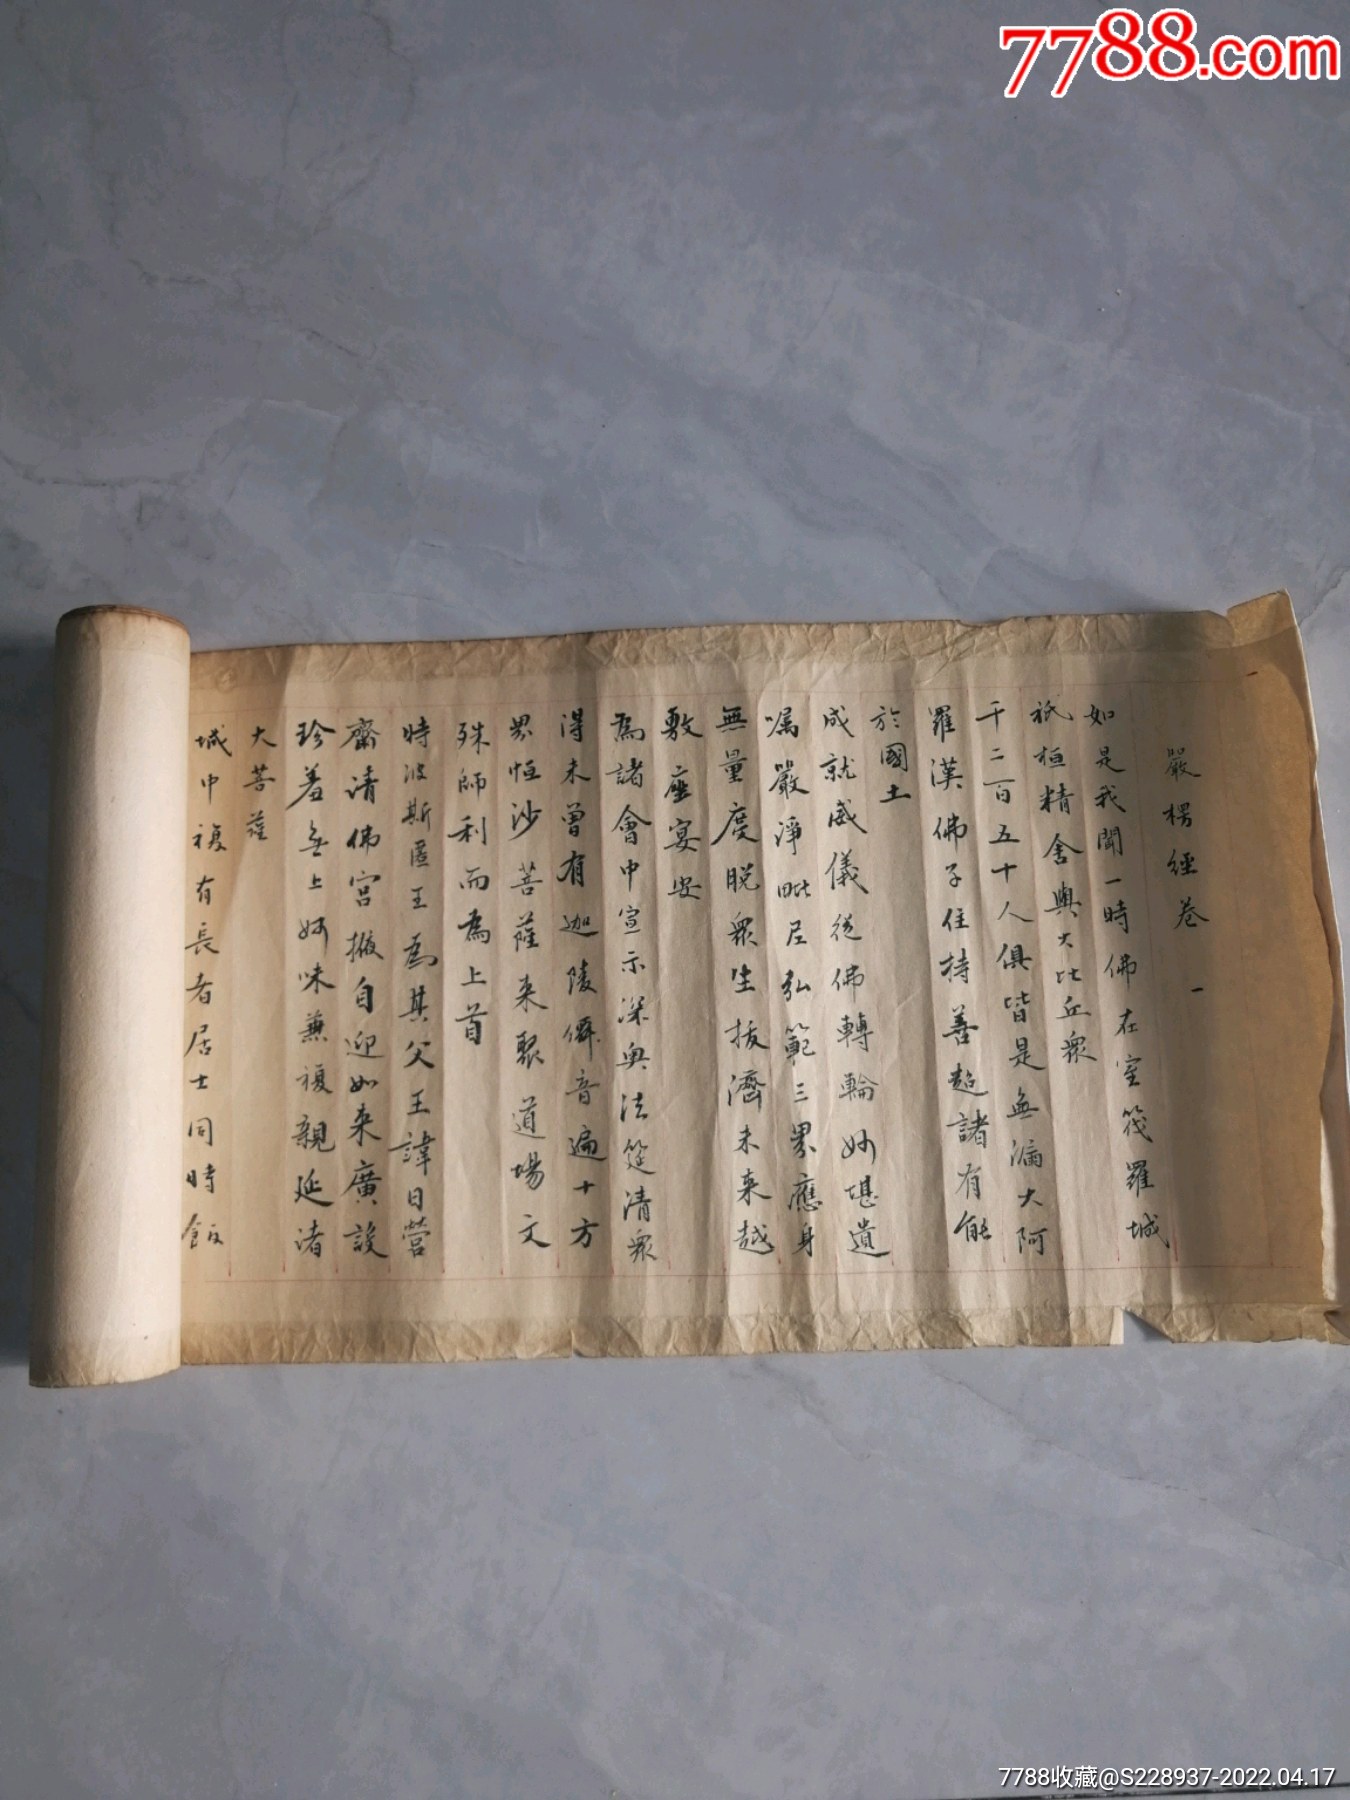 7788.com
嚴楞經卷一
如是我聞一時佛在室筏羅城
祇桓精舍與大比丘眾
千二百五十人俱皆是無漏大阿
羅漢佛子住持善超諸有能
於國土
成就威儀從佛轉輪妙堪遺
嘱嚴淨毗尼弘範三界應身
無量度脱眾生拔濟未来越
敷座宴安
為諸會中宣示深奥法筵清眾
得未曾有迦陵僊音遍十方
界恒沙菩薩来聚道場文
殊師利而為上首
時波斯匿王為其父王諱日營
齋请佛宫掖自迎如来廣設
珍羞無上妙味兼複親延诸
大菩薩
城中複有長者居士同時飯
7788收藏@S228937-2022.04.17